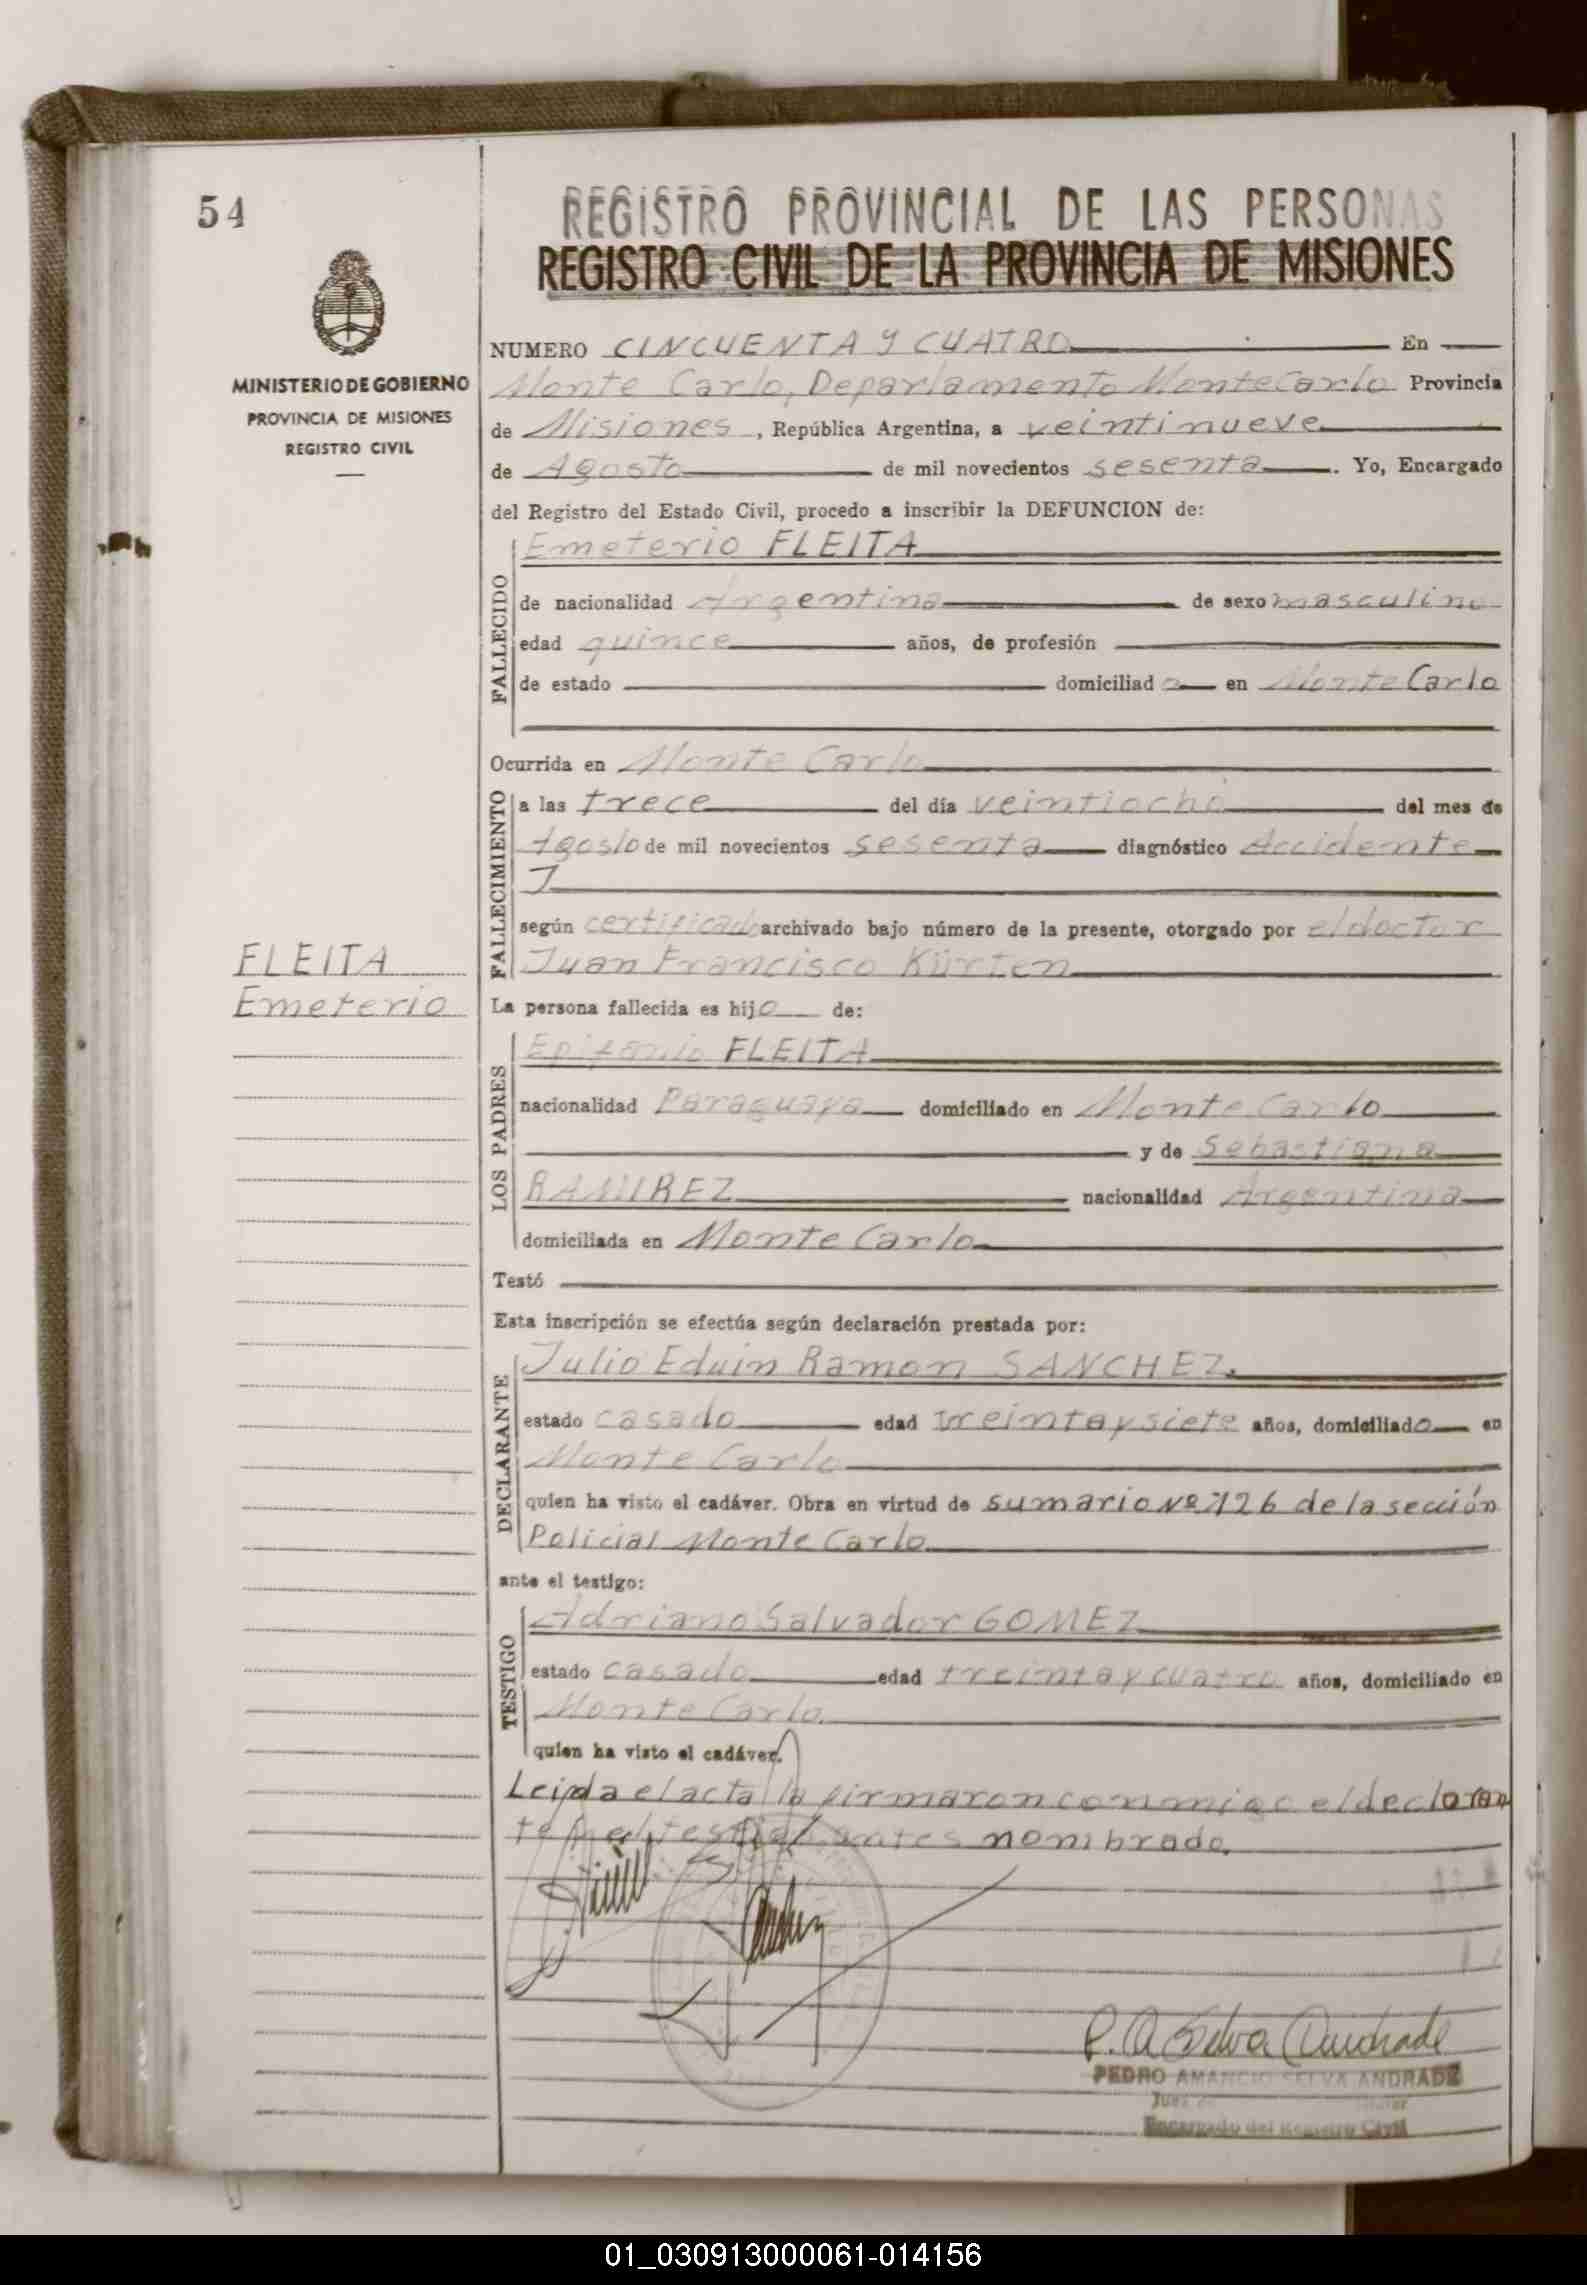 54
REGISTRO PROVINCIAL DE LAS PERSONAS
REGISTRO CIVIL DE LA PROVINCIA DE MISIONES
MINISTERIO DE GOBIERNO
PROVINCIA DE MISIONES
REGISTRO CIVIL
NUMERO CINCUENTA Y CUATRO En
Monte Carlo, Departamento Monte Carlo Provincia
de Misiones, República Argentina, a veintinueve
de Agosto de mil novecientos sesenta. Yo, Encargado
del Registro del Estado Civil, procedo a inscribir la DEFUNCION de:
FALLECIDO
Emeterio FLEITA
de nacionalidad Argentina de sexo masculino
edad quince años, de profesión
de estado domiciliado en Monte Carlo
Ocurrida en Monte Carlo
FALLECIMIENTO
a las trece del día veintiocho del mes de
Agosto de mil novecientos sesenta diagnóstico Accidente
según certificado archivado bajo número de la presente, otorgado por el doctor
Juan Francisco Kürten
FLEITA
Emeterio
La persona fallecida es hijo de:
LOS PADRES
Epifanio FLEITA
nacionalidad Paraguaya domiciliado en Monte Carlo
y de Sebastiana
RAMIREZ nacionalidad Argentina
domiciliada en Monte Carlo
Testó
Esta inscripción se efectúa según declaración prestada por:
DECLARANTE
Julio Eduin Ramon SANCHEZ.
estado casado edad treinta y siete años, domiciliado en
Monte Carlo
quien ha visto el cadáver. Obra en virtud de sumario Nº 126 de la sección
Policial Monte Carlo
ante el testigo:
TESTIGO
Adriano Salvador GOMEZ
estado casado edad treinta y cuatro años, domiciliado en
Monte Carlo
quien ha visto el cadáver.
Leida el acta la firmaron conmigo el declaran
te y el testigo antes nombrado.
P. A Selva Andrade
PEDRO AMANCIO SELVA ANDRADE
Juez de
Encargado del Registro Civil
01_030913000061-014156